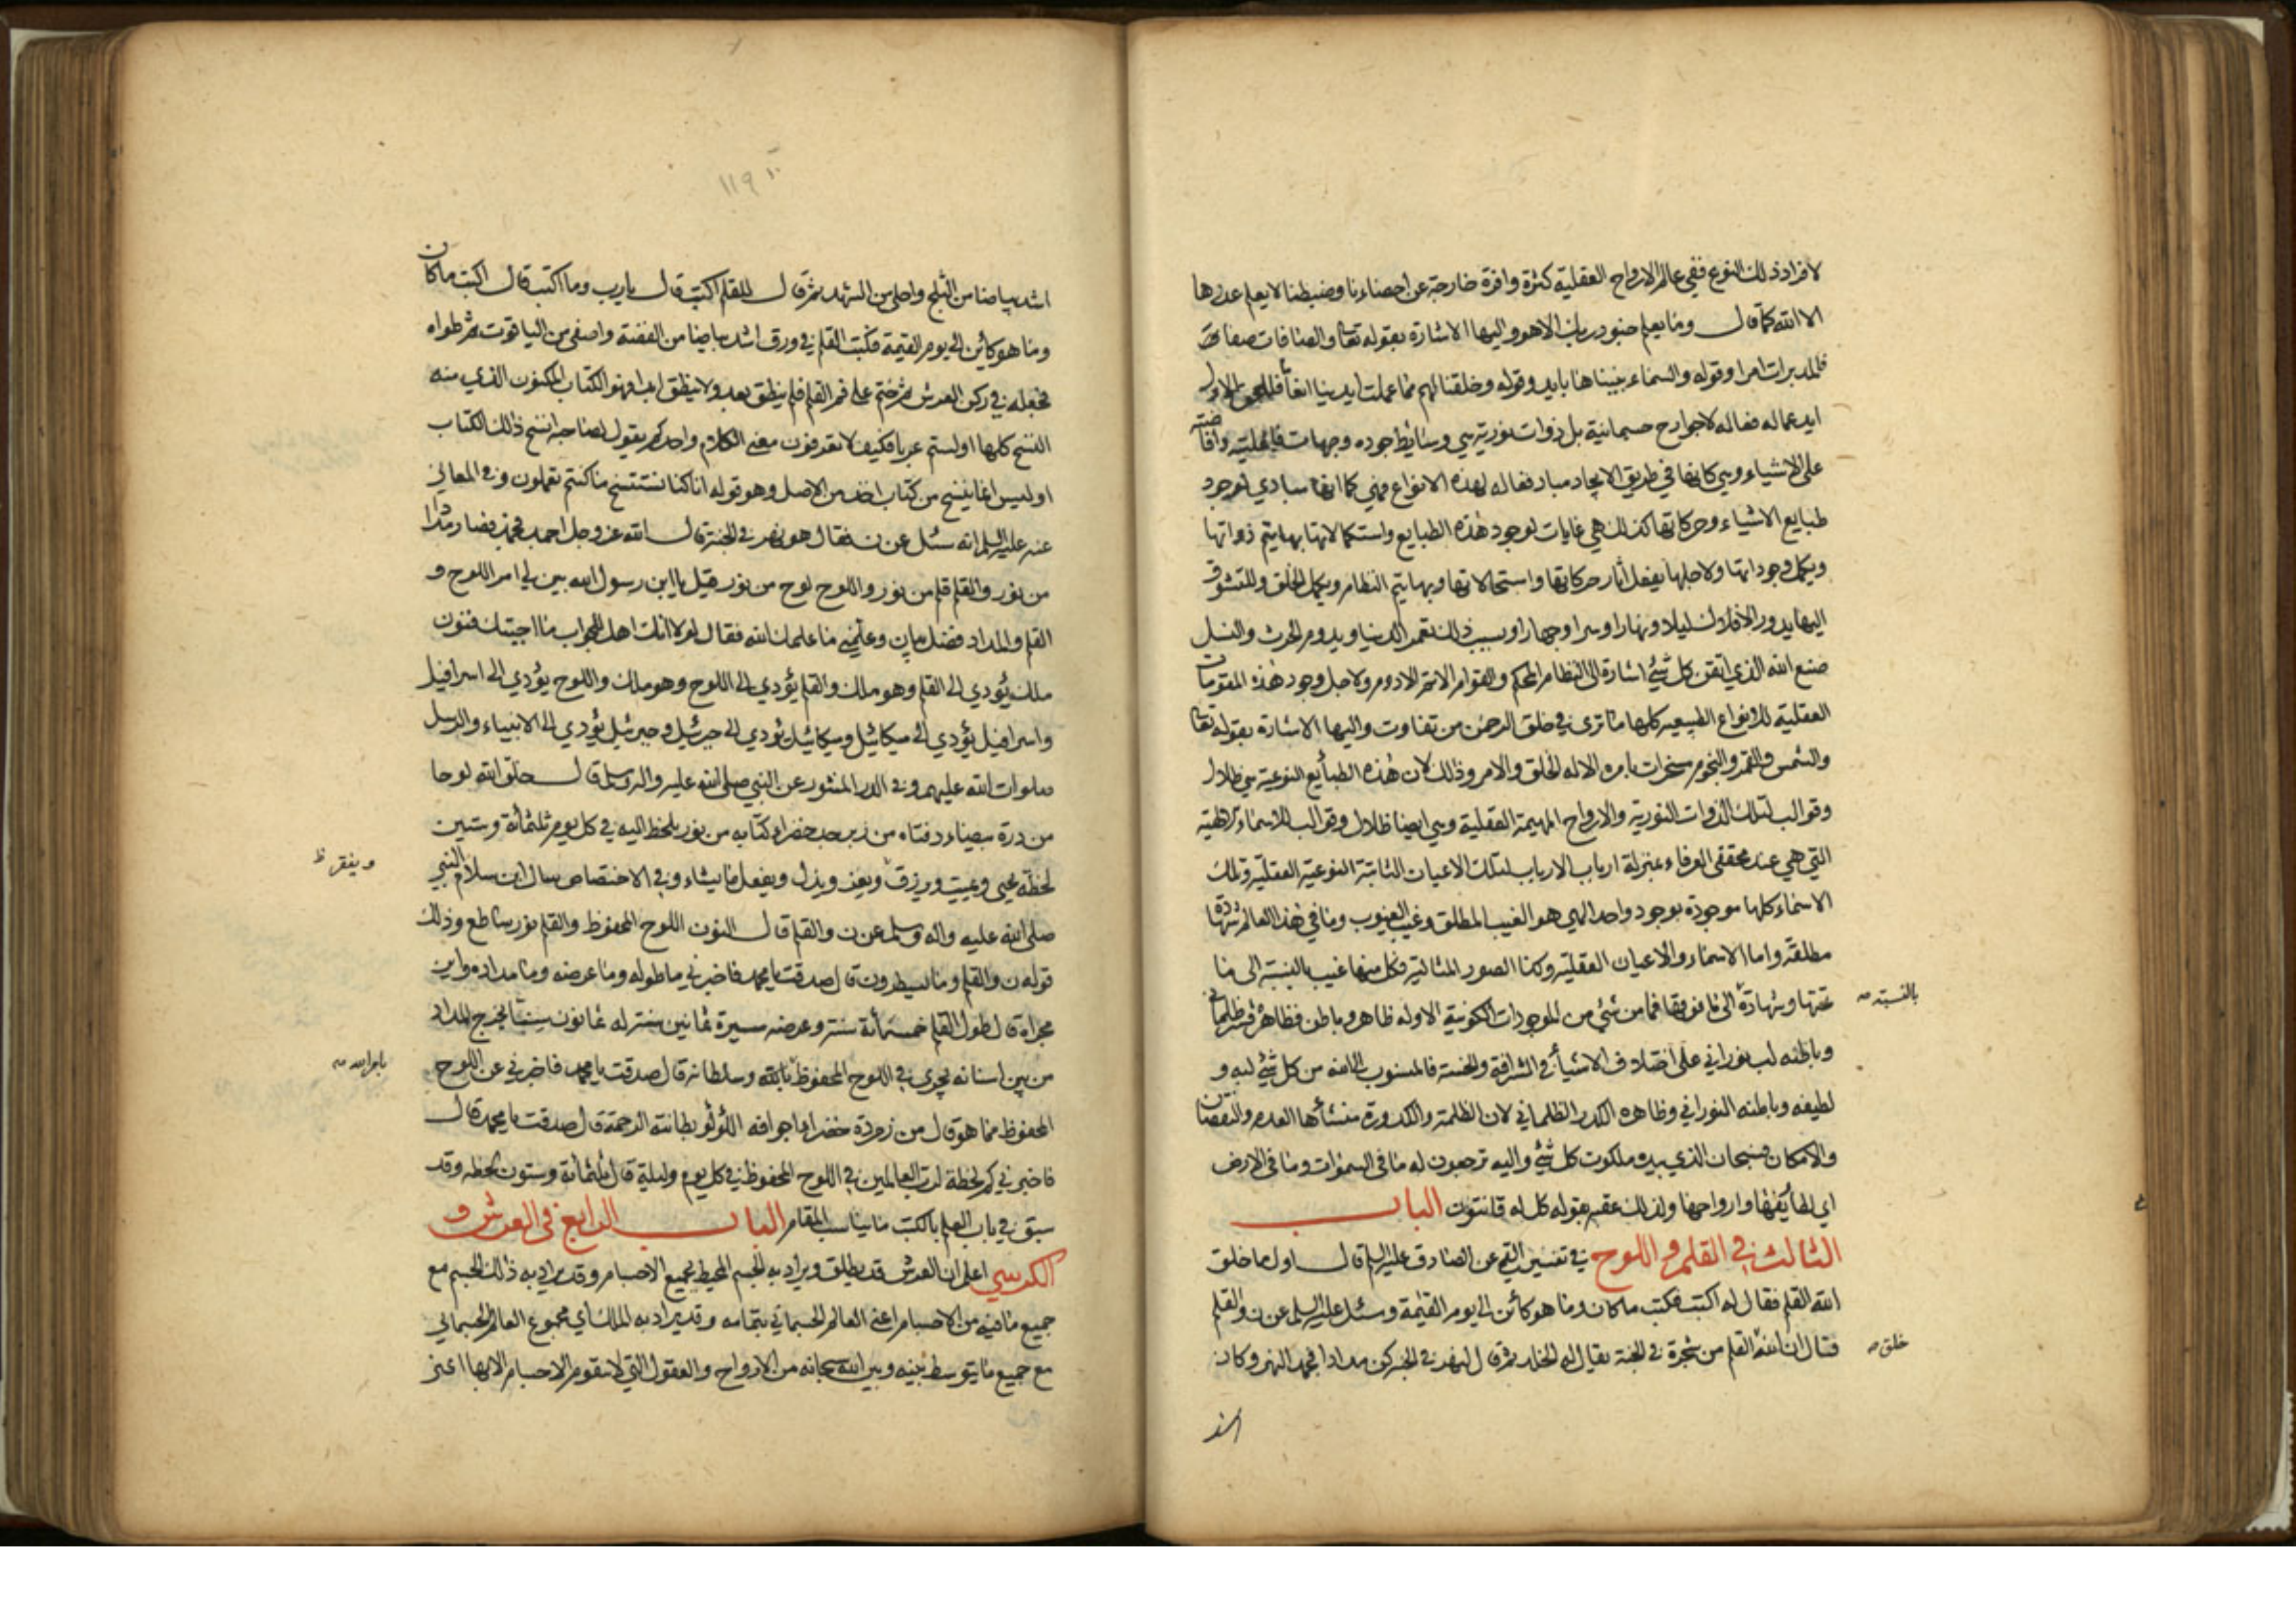 لافراد ذلك النوع ففي عالم الارواح العقلية كثرة وافرة خارجة عن احصاءنا وضبطنا لا يعلم عددها
الا الله كما قال وما يعلم جنود ربك الا هو واليها الاشارة بقوله تعا والصافات صفا
فالمدبرات امرا وقوله والسماء بنيناها بايد وقوله وخلقنا لهم مما عملت ايدينا انعاما
ايد عماله فعاله لا جوارح جسمانية بل ذوات نورية هي وسايط جوده وجهات فاعليته وافاضته
على الاشياء وهي كانها في طريق الايجاد مباد فعاله لهذه الانواع فهي كما انها مبادي لوجود
طبايع الاشياء وحركاتها كذلك هي غايات لوجود هذه الطبايع واستكمالاتها بها يتم ذواتها
ويكمل وجوداتها ولاجلها يفعل اثار حركاتها واستحالاتها وبها يتم النظام ويكمل الخلق وللتشوق
اليها يدور الافلاك ليلا ونهارا وسرا وجهارا وبسبب ذلك تعمر الدنيا ويدوم الحرث والنسل
صنع الله الذي اتقن كل شئ اشارة الى النظام المحكم والقوام الاتم الادوم ولاجل وجود هذه المقومات
العقلية للانواع الطبيعيه كلها ما ترى في خلق الرحمن من تفاوت واليها الاشارة بقوله تعا
والشمس والقمر والنجوم مسخرات بامره الا له الخلق والامر وذلك لان هذه الطبايع النوعية هي ظلال
وقوالب لتلك الذوات النورية والارواح المهيمة العقلية وهي ايضا ظلال وقوالب للاسماء الالهية
التي هي عند محققي العرفاء بمنزلة ارباب الارباب لتلك الاعيان الثابتة النوعية العقلية وتلك
الاسماء كلها موجودة بوجود واحد الهي هو الغيب المطلق وغيب الغيوب وما في هذا العالم شهادة
مطلقة واما الاسماء والاعيان العقلية وكذا الصور المثالية فكل منها غيب بالنسبة الى ما
تحتها وشهادة الى ما فوقها فما من شئ من الموجودات الكونية الا وله ظاهر وباطن فظاهره قشر ظلماني
بالنسبة صه
وباطنه لب نوراني على اختلاف الاشياء في الشرافة والخسة فالمنسوب الى الله من كل شئ لبه و
لطيفه وباطنه النوراني وظاهره الكدر الظلماني لان الظلمة والكدورة منشأها العدم والنقصان
والامكان فسبحان الذي بيده ملكوت كل شئ واليه ترجعون له ما في السموات وما في الارض
اي لطايفها وارواحها ولذلك عقبه بقوله كل له قانتون الباب
الثالث في القلم واللوح في تفسير القمي عن الصادق عليه السلم قال اول ما خلق
الله القلم فقال له اكتب فكتب ما كان وما هو كائن الى يوم القيمة وسئل عليه السلم عن ن والقلم
فقال ان الله القلم من شجرة في الجنة يقال لها الخلد ثم قال لنهر في الجنة كن مدادا فجمد النهر وكان
خلق صه
اشد
١١٩
اشد بياضا من الثلج واحلى من الشهد ثم قال للقلم اكتب قال يارب وما اكتب قال اكتب ما كان
وما هو كائن الى يوم القيمة فكتب القلم في ورق اشد بياضا من الفضة واصفى من الياقوت ثم طواه
فجعله في ركن العرش ثم ختم على فم القلم فلم ينطق بعد ولا ينطق ابدا وهو الكتاب المكنون الذي منه
النسخ كلها اولستم عربا فكيف لا تعرفون معنى الكلام واحدكم يقول لصاحبه انسخ ذلك الكتاب
اوليس انما ينسخ من كتاب اخذ من الاصل وهو قوله انا كنا نستنسخ ما كنتم تعملون وفي المعاني
عنه عليه السلم انه سئل عن ن فقال هو نهر في الجنة قال الله عز وجل اجمد فجمد فصار مدادا
من نور والقلم قلم من نور واللوح لوح من نور فقيل يا ابن رسول الله بين لي امر اللوح و
القلم والمداد فضل بيان وعلمني مما علمك الله فقال لولا انك اهل للجواب ما اجبتك فنون
ملك يؤدي الى القلم وهو ملك والقلم يؤدي الى اللوح وهو ملك واللوح يؤدي الى اسرافيل
واسرافيل يؤدي الى ميكائيل وميكائيل يؤدي الى جبرئيل وجبرئيل يؤدي الى الانبياء والرسل
صلوات الله عليهم وفي الدر المنثور عن النبي صلى الله عليه واله وسلم قال خلق الله لوحا
من درة بيضاء دفتاه من زبرجد خضراء كتابه من نور يلحظ اليه في كل يوم ثلثمائة وستين
لحظة يحيى ويميت ويرزق ويعز ويذل ويفعل ما يشاء وفي الاختصاص سال ابن سلام النبي
ويفقر ظ
صلى الله عليه واله وسلم عن ن والقلم قال النون اللوح المحفوظ والقلم نور ساطع وذلك
قوله ن والقلم وما يسطرون قال صدقت يا محمد فاخبرني ما طوله وما عرضه وما مداده واين
مجراه قال طول القلم خمسمائة سنة وعرضه مسيرة ثمانين سنة له ثمانون سنا يخرج المداد
من بين اسنانه يجري في اللوح المحفوظ بالله وسلطانه قال صدقت يا محمد فاخبرني عن اللوح
بامر الله صه
المحفوظ مما هو قال من زمردة خضراء اجوافه اللؤلؤ بطانته الرحمة قال صدقت يا محمد قال
فاخبرني كم لحظة لرب العالمين في اللوح المحفوظ في كل يوم وليلة قال ثلثمائة وستون لحظه وقد
سبق في باب العلم بالكتب ما يناسب المقام الباب الرابع في العرش و
الكرسي اعلم ان العرش قد يطلق ويراد به الجسم المحيط بجميع الاجسام وقد يراد به ذلك الجسم مع
جميع ما فيه من الاجسام اعني العالم الجسماني بتمامه وقد يراد به الملك اي مجموع العالم الجسماني
مع جميع ما يتوسط بينه وبين الله سبحانه من الارواح والعقول التي لا يتقوم الاجسام الا بها اعني